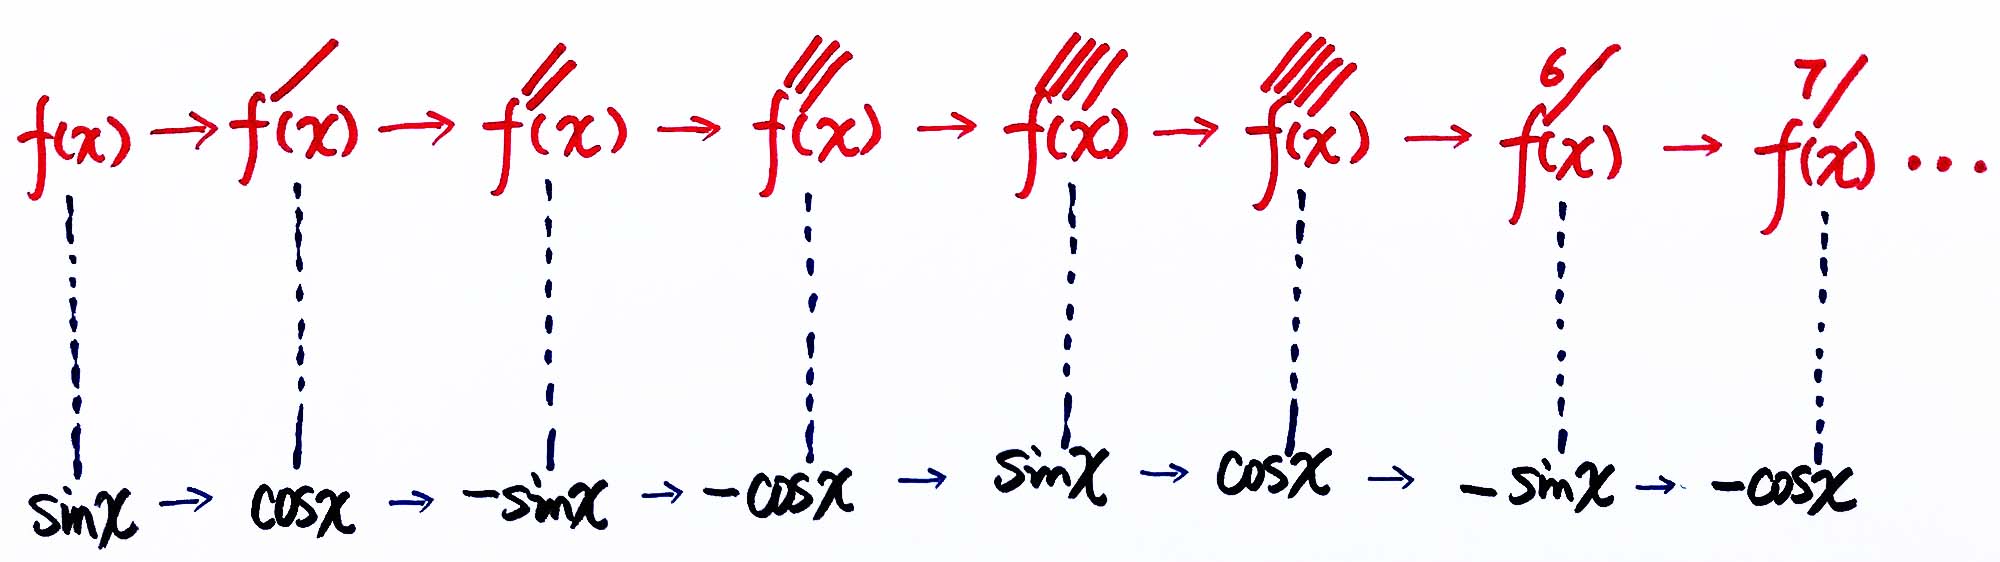 f(x) → f′(x) → f′′(x) → f′′′(x) → f′′′′(x) → f′′′′′(x) → f⁶′(x) → f⁷′(x) ...
sinx → cosx → -sinx → -cosx → sinx → cosx → -sinx → -cosx